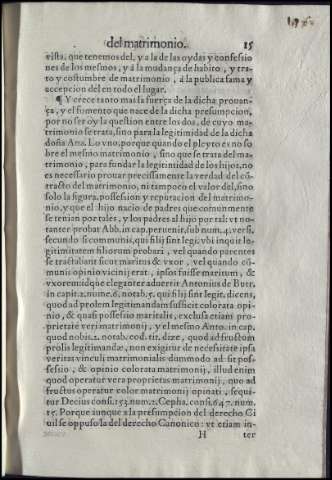 del matrimonio. 15
vista, que tenemos del, y a la de las oydas y confessio
nes de los mesmos, y á la mudança de habito, y tra-
to y costumbre de matrimonio, á la publica fama y
accepcion del en todo el lugar.
¶ Y crece tanto mas la fuerça de la dicha prouan-
ça, y el fomento que nace de la dicha presumpcion,
por no ser oy la question entre los dos, de cuyo ma-
trimonio se trata, sino para la legitimidad de la dicha
doña Ana. Lo vno, porque quando el pleyto es no so
bre el mesmo matrimonio, sino que se trata del ma-
trimonio, para fundar la legitimidad de los hijos, no
es necessario prouar precissamente la verdad del cō-
tracto del matrimonio, ni tampoco el valor del, sino
solo la figura, possession y reputacion del matrimo-
nio, y que el hijo nacio de padres que comunmente
se tenian por tales, y los padres al hijo por tal: vt no-
tanter probat Abb. in cap. peruenit, sub num. 4. versi.
secundo si communis, qui filij sint legi. vbi inquit le-
gitimitatem filiorum probari, vel quando parentes
se tractabant sicut maritus & vxor, vel quando cō-
munis opinio vicini erat, ipsos fuisse maritum, &
vxorem idque eleganter aduertit Antonius de Butr.
in capit. 2. nume. 6. notab. 5. qui filij sint legit. dicens,
quod ad prolem legitimandam sufficit colorata opi-
nio, & quasi possessio maritalis, exclusa etiam pro-
prietate veri matrimonij, y el mesmo Anto. in cap.
quod nobis. 2. notab. eod. tit. dize, quod ad fructum
prolis legitimandæ, non exigitur de necessitate ipsa
veritas vinculi matrimonialis dummodo ad sit pos-
sessio, & opinio colorata matrimonij, illud enim
quod operatur vera proprietas matrimonij, quo ad
fructus operatur color matrimonij opinati, sequi-
tur Decius consi. 153. num. 2. Cepha. consi. 647. num.
15. Porque aunque a la presumpcion del derecho Ci
uil se oppuso la del derecho Canonico: vt etiam in-
H ter